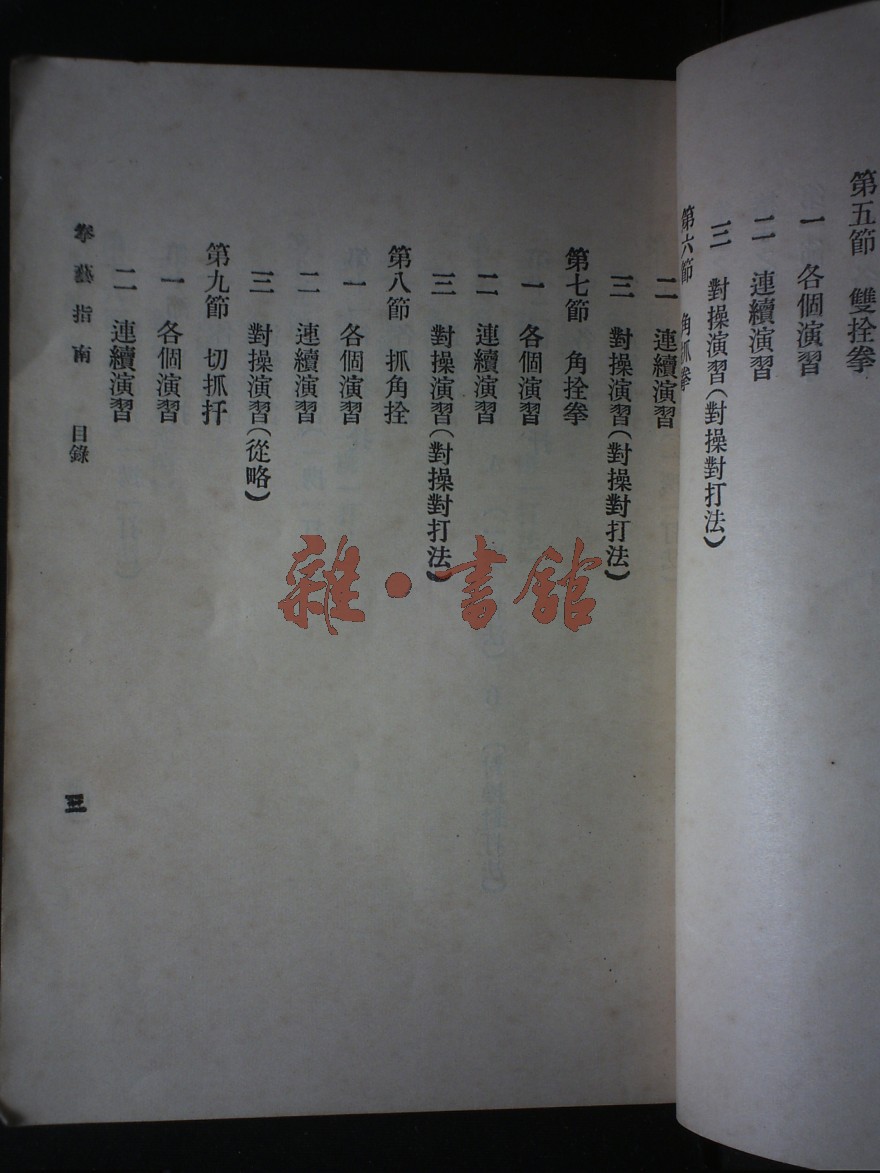 第五節 雙拴拳
一 各個演習
二 連續演習
三 對操演習(對操對打法)
第六節 角抓拳
二 連續演習
三 對操演習(對操對打法)
第七節 角拴拳
一 各個演習
二 連續演習
三 對操演習(對操對打法)
第八節 抓角拴
一 各個演習
二 連續演習
三 對操演習(從略)
第九節 切抓扦
一 各個演習
二 連續演習
拳藝指南 目錄
三
雜·書館